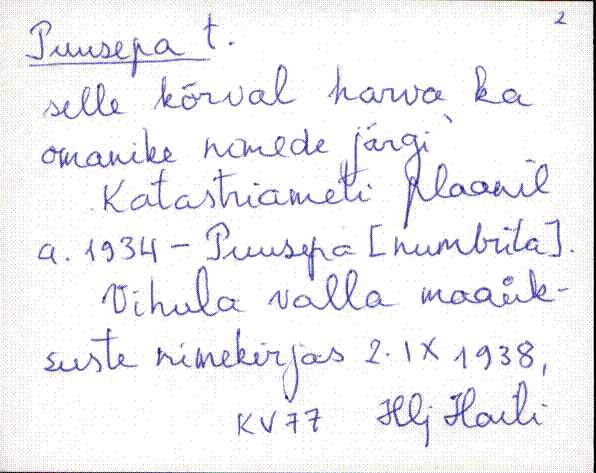 2
Puusepa t.
selle kõrval harva ka
omanike nimede järgi
Katastriameti plaanil
a. 1934 - Puusepa [numbrita].
Vihula valla maaük-
suste nimekirjas 2. IX 1938,
KV 77 Hlj Haili